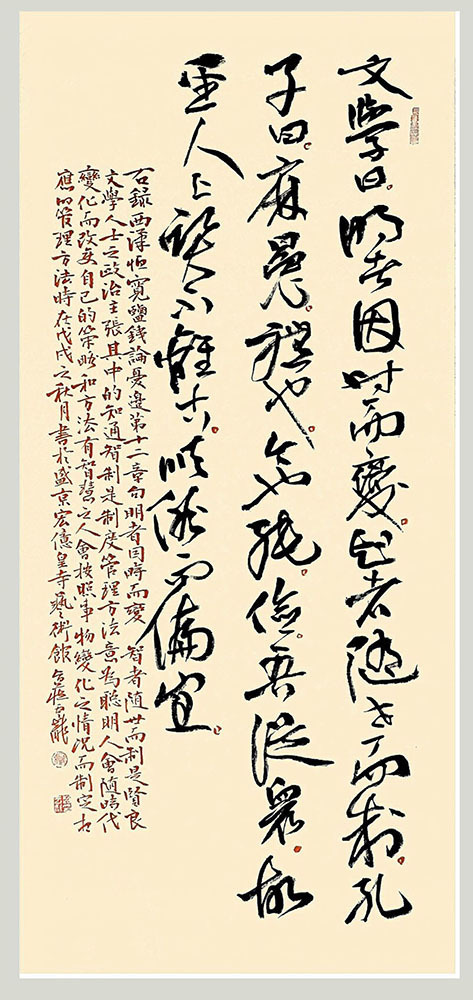 文學曰明者因时而變知者随世而制孔
子曰麻冕禮也今也純儉吾從衆故
圣人上賢不離古順俗而偏宜
右録西漢恒寬鹽錢論憂邊第十二章句明者因時而變智者随世而制是賢良
文學人士之政治主張其中的知通智制是制度管理方法意為聰明人會随時代
變化而改变自己的策略和方法有智慧之人會按照事物變化之情况而制定相
應的管理方法時在戊戌之秋月書於盛京宏億皇寺藝術館